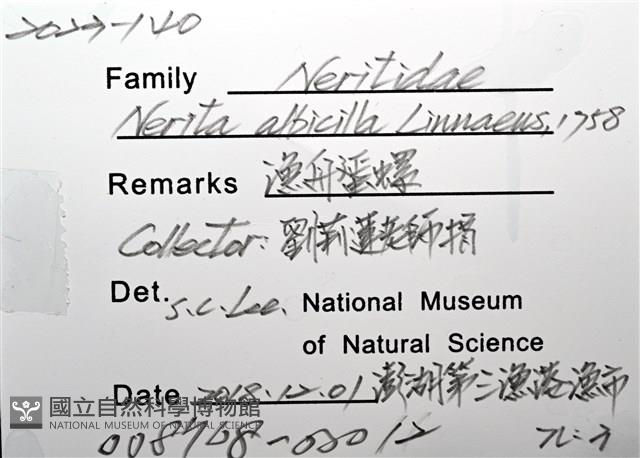 2023-140
Family Neritidae
Nerita albicilla Linnaeus, 1758
Remarks 漁舟蜑螺
Collector: 劉莉蓮老師捐
Det. S.C. Lee. National Museum
of Natural Science
Date 2018.12.01 澎湖第三漁港漁市
國立自然科學博物館
NATIONAL MUSEUM OF NATURAL SCIENCE